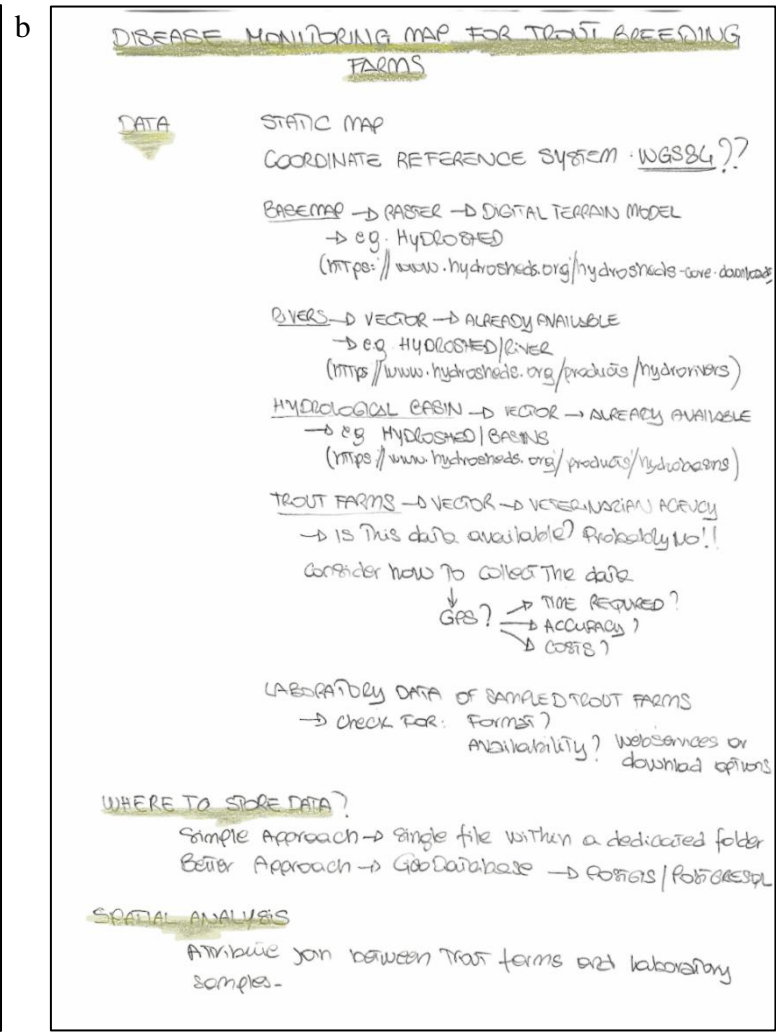 b
DISEASE MONITORING MAP FOR TROUT BREEDING
FARMS
DATA STATIC MAP
COORDINATE REFERENCE SYSTEM · WGS84??
BASEMAP → RASTER → DIGITAL TERRAIN MODEL
→ eg. HYDROSHED
(https://www.hydrosheds.org/hydrosheds-core-downloads
RIVERS → VECTOR → ALREADY AVAILABLE
→ e.g. HYDROSHED/RIVER
(https//www.hydrosheds.org/products/hydrorivers)
HYDROLOGICAL BASIN → VECTOR → ALREADY AVAILABLE
→ eg HYDROSHED/BASINS
(https//www.hydrosheds.org/products/hydrobasins)
TROUT FARMS → VECTOR → VETERINARIAN AGENCY
→ IS This data available? Probably No!!
Consider how To collect The data
↓
GPS? → TIME REQUIRED?
→ ACCURACY?
→ COSTS?
LABORATORY DATA OF SAMPLED TROUT FARMS
→ Check FOR: Format?
Availability? Webservices or
download options
WHERE TO STORE DATA?
Simple Approach → Single file within a dedicated folder
Better Approach → GeoDatabase → POSTGIS/POSTGRESQL
SPATIAL ANALYSIS
Attribute join between Trout farms and laboratory
samples-